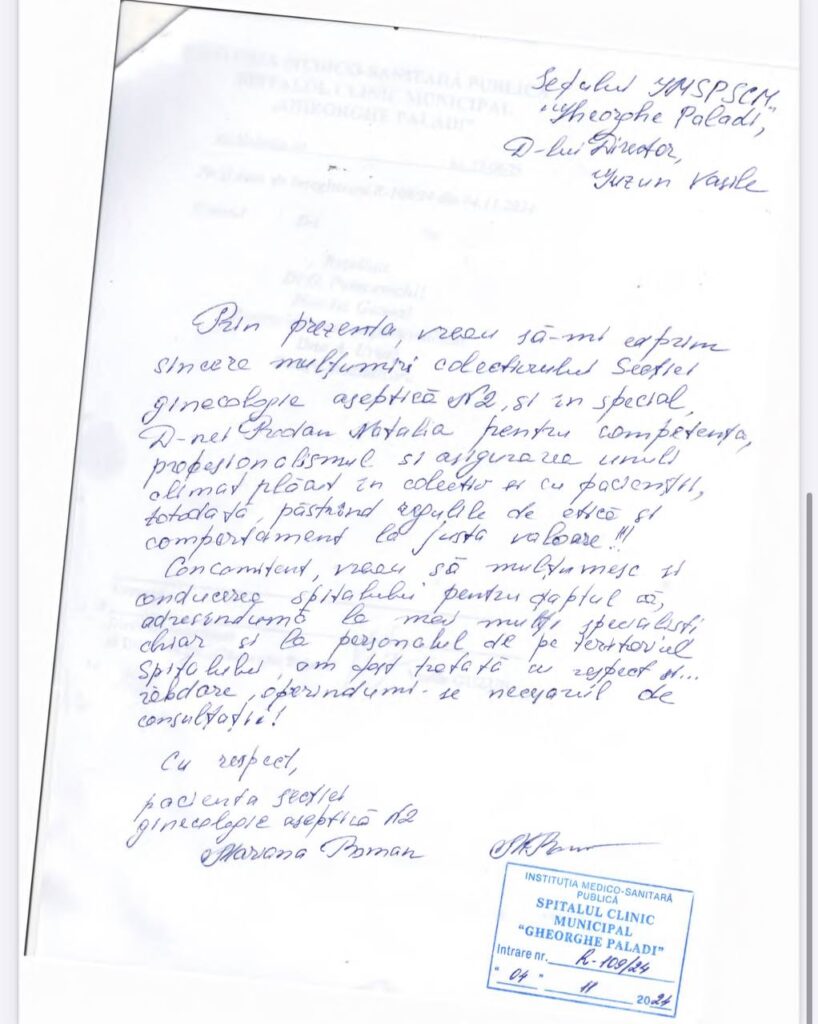 Șefului IMSPSCM
"Gheorghe Paladi",
D-lui Director,
Guzun Vasile
Prin prezenta, vreau să-mi exprim
sincere mulțumiri colectivului Secției
ginecologie aseptică N2, și în special,
D-nei Prodan Natalia pentru competența,
profesionalismul și asigurarea unui
climat plăcut în colectiv și cu pacienții,
totodată, păstrînd regulile de etică și
comportament la justa valoare!!!
Concomitent, vreau să mulțumesc și
conducerea spitalului pentru faptul că,
adresîndumă la mai mulți specialiști
chiar și la personalul de pe teritoriul
Spitalului, am fost tratată cu respect și...
răbdare, oferindumi-se necesarul de
consultații!
Cu respect,
pacienta secției
ginecologie aseptică N2
Mariana Roman
INSTITUȚIA MEDICO-SANITARĂ
PUBLICĂ
SPITALUL CLINIC
MUNICIPAL
"GHEORGHE PALADI"
Intrare nr. R-109/24
"04" 11 2024